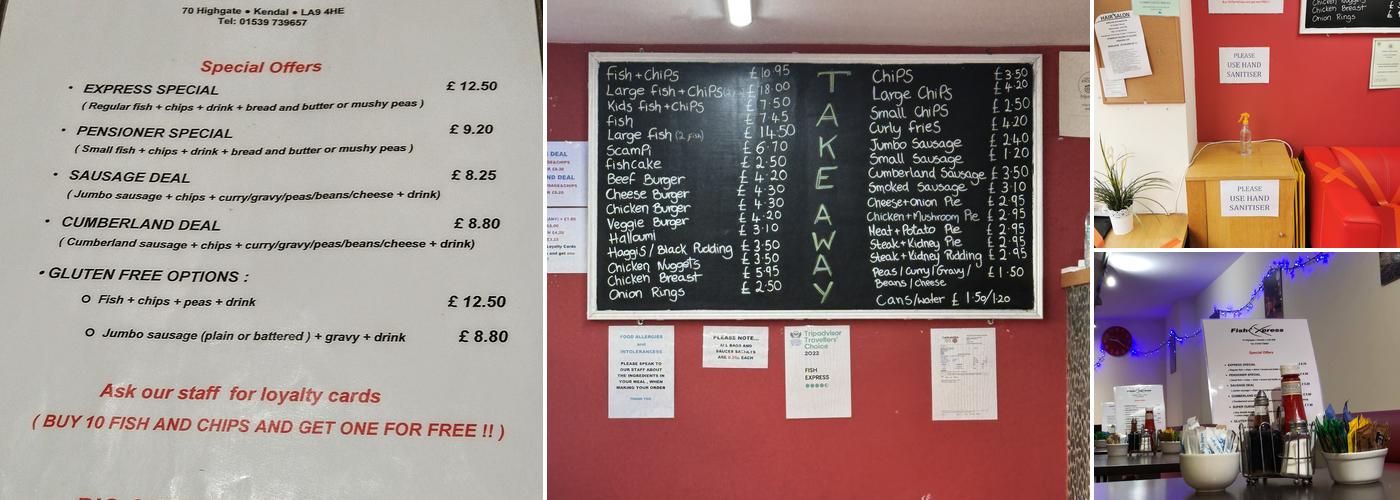 70 Highgate ● Kendal ● LA9 4HE
Tel: 01539 739657
Special Offers
• EXPRESS SPECIAL £ 12.50
( Regular fish + chips + drink + bread and butter or mushy peas )
• PENSIONER SPECIAL £ 9.20
( Small fish + chips + drink + bread and butter or mushy peas )
• SAUSAGE DEAL £ 8.25
( Jumbo sausage + chips + curry/gravy/peas/beans/cheese + drink)
• CUMBERLAND DEAL £ 8.80
( Cumberland sausage + chips + curry/gravy/peas/beans/cheese + drink)
• GLUTEN FREE OPTIONS :
o Fish + chips + peas + drink £ 12.50
o Jumbo sausage (plain or battered ) + gravy + drink £ 8.80
Ask our staff for loyalty cards
( BUY 10 FISH AND CHIPS AND GET ONE FOR FREE !! )
Fish+ChiPs £10.95
Large fish+ChiPs £18.00
Kids fish+ChiPs £7.50
fish £7.45
Large fish (2 fish) £14.50
ScamPi £6.70
fishcake £2.50
Beef Burger £4.20
Cheese Burger £4.30
Chicken Burger £4.30
Veggie Burger £4.20
Halloumi £3.10
HaggiS / Black Pudding £3.50
Chicken Nuggets £3.50
Chicken Breast £5.95
Onion Rings £2.50
TAKE AWAY
ChiPS £3.50
Large ChiPS £4.20
Small ChiPS £2.50
Curly frieS £4.20
Jumbo Sausage £2.40
Small Sausage £1.20
Cumberland Sausage £3.50
Smoked Sausage £3.10
Cheese+onion Pie £2.95
Chicken+Mushroom Pie £2.95
Meat+Potato Pie £2.95
Steak+Kidney Pie £2.95
Steak+Kidney Pudding £2.95
Peas/Curry/Gravy/ £1.50
Beans/cheese
Cans/water £1.50/1.20
DEAL
FOOD ALLERGIES
and
INTOLERANCES
PLEASE SPEAK TO
OUR STAFF ABOUT
THE INGREDIENTS IN
YOUR MEAL, WHEN
MAKING YOUR ORDER
THANK YOU
PLEASE NOTE...
ALL BAGS AND
EACH
Tripadvisor
Travellers'
Choice
2022
FISH
EXPRESS
HAIR SALON
Chicken Breast
Onion Rings
PLEASE
USE HAND
SANITISER
PLEASE
USE HAND
SANITISER
Fish Express
Special Offers